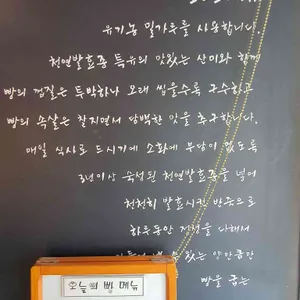 유기농 밀가루를 사용합니다.
천연발효종 특유의 맛있는 산미와 함께
빵의 겉질은 투박하나 오래 씹을수록 구수하고
빵의 속살은 찰지면서 담백한 맛을 추구합니다.
매일 식사로 드시기에 소화에 부담이 없도록
3년이상 숙성된 천연발효종을 넣어
천천히 발효시킨 반죽으로
하루동안 정성을 다해서
있는 양만큼만
빵을 굽는
오늘의 빵 메뉴